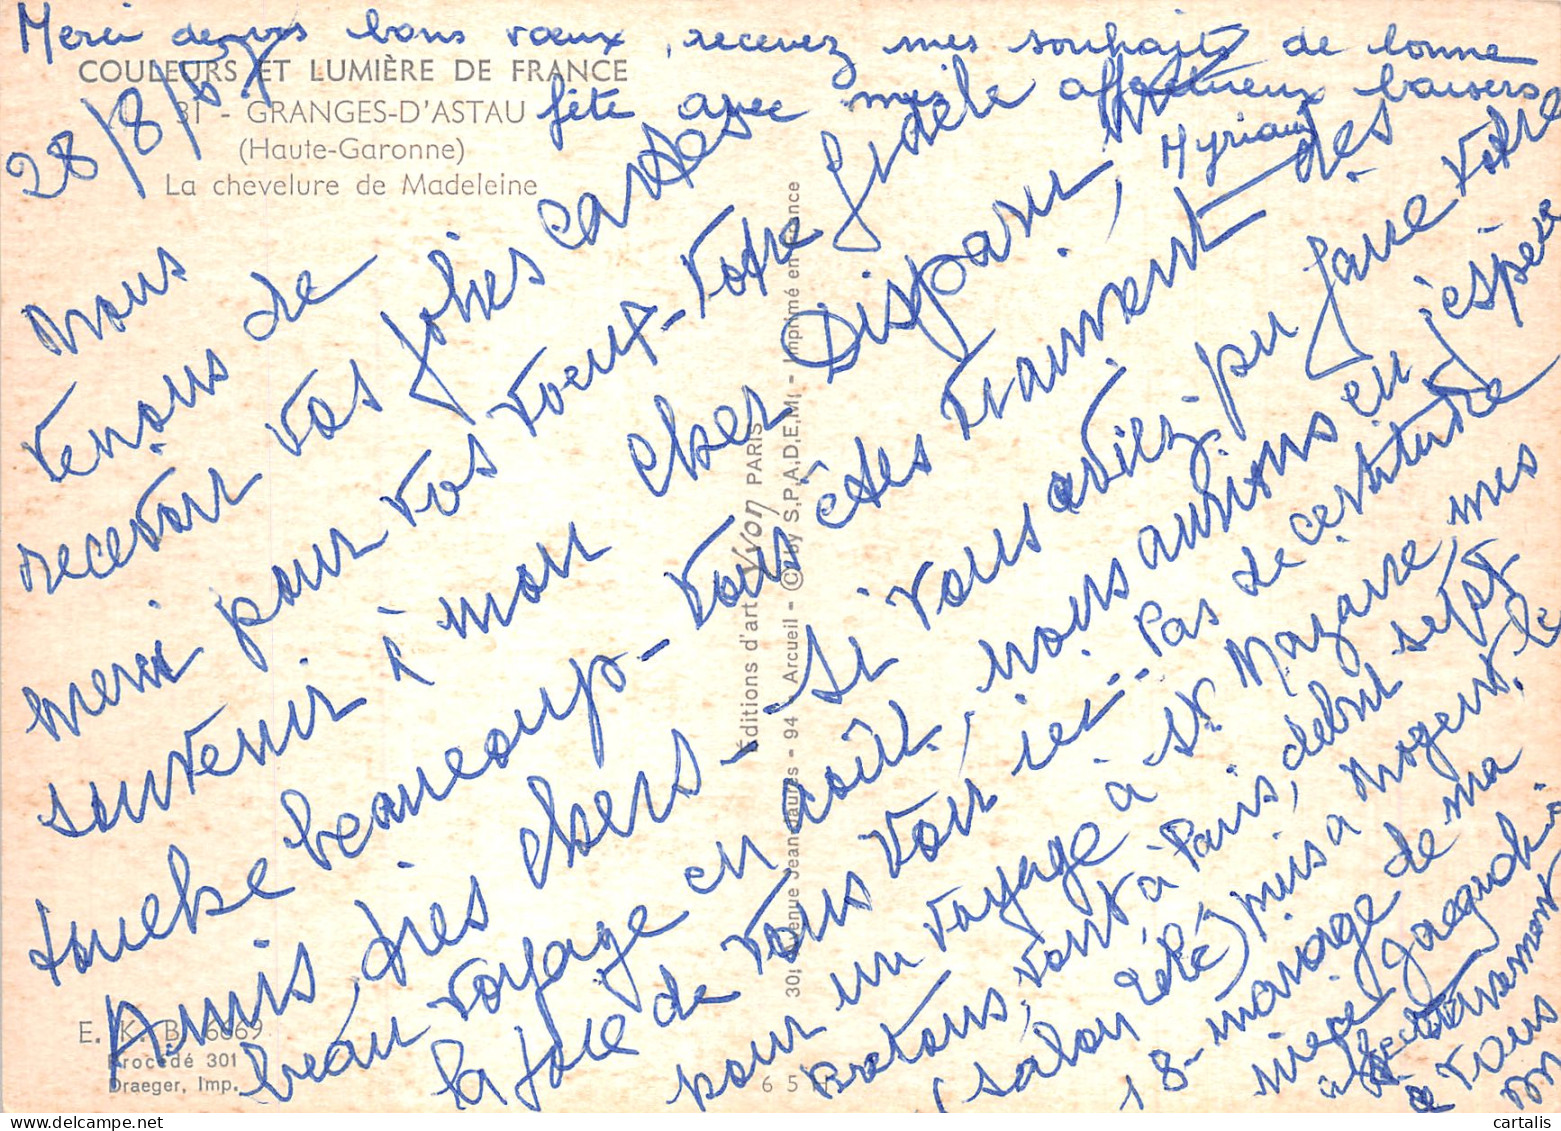 Merci de vos bons vœux, recevez mes souhaits de bonne
fête avec mes affectueux baisers
Myriam
COULEURS ET LUMIÈRE DE FRANCE
31 - GRANGES-D'ASTAU
(Haute-Garonne)
La chevelure de Madeleine
28/8/67
Nous
venons de
recevoir vos jolies cartes
merci pour vos voeux - Votre fidèle
souvenir à mon cher Disparu, me
touche beaucoup - Vous êtes vraiment des
Amis très chers - Si vous aviez pu faire votre
beau voyage en août, nous aurions eu j'espère
la joie de vous voir ici... Pas de certitude
pour un voyage à St Nazaire, mes
Bretons vont à Paris, début sept
(salon été) puis à Nogent, le
18 - mariage de ma
nièce
affectueusement
à vous
Éditions d'art Yvon PARIS
30, Avenue Jean-Jaurès - 94 Arcueil - © by S.P.A.D.E.M. - Imprimé en France
E. K. B. 6669
Procédé 301
Draeger, Imp.
6 5
cartalis